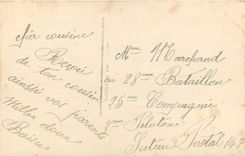 Chère cousine
Reçois
de ton cousin
ainsi vos parents
Milles doux
Baisers
Mr Marchand
au 28me Bataillon
95me Compagnie
Peloton
Secteur Postal 14